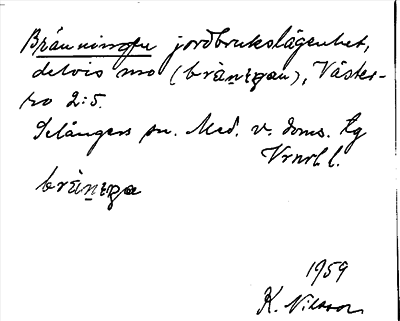 Bränningen jordbrukslägenhet,
delvis mo (bräniŋan), Väster-
ro 2:5.
Selångers sn. Med. v. doms. Lg
Vrnrl l.
bräniŋa
1959
K. Nilsson